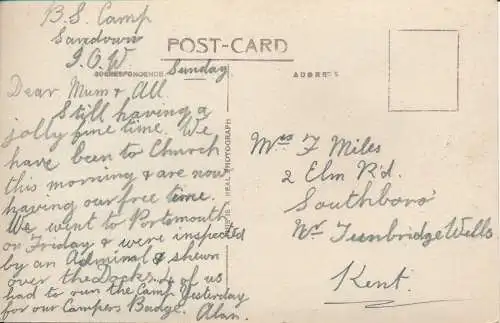 B.S. Camp
Sandown
I.O.W.
POST-CARD
CORRESPONDENCE
ADDRESS
Sunday
Dear Mum & All
Still having a
jolly fine time. We
have been to Church
this morning & are now
having our free time.
We went to Portsmouth
on Friday & were inspected
by an Admiral & shewn
over the Docks. of us
had to run the Camp Yesterday
for our Campers Badge. Alan.
THIS IS A REAL PHOTOGRAPH
Mrs F Miles
2 Elm Rd.
Southboro'
Nr Tunbridge Wells
Kent.